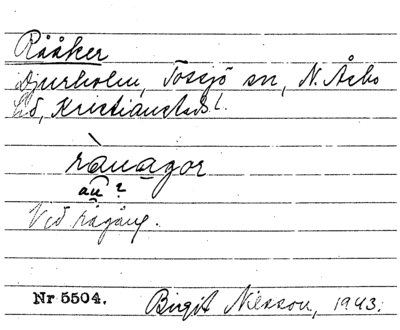 Rååker
Djurholm, Tossjö sn, N. Åsbo
hd, Kristianstads l.
rànagor
au ?
Vid rågång.
Nr 5504. Birgit Nilsson, 1943.